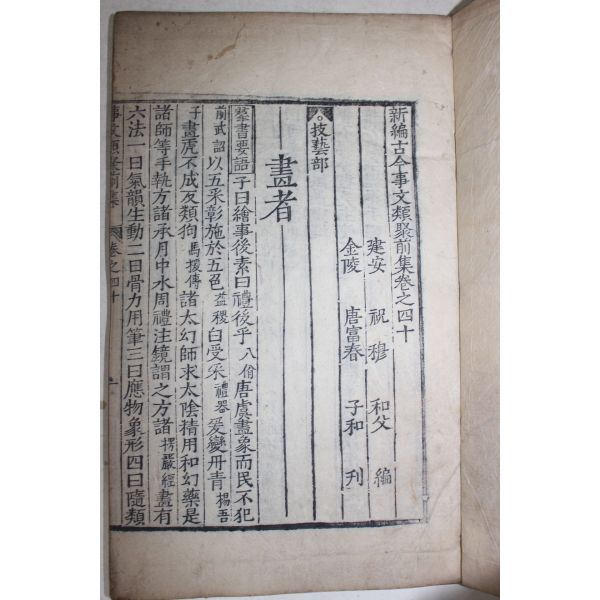 新編古今事文類聚前集卷之四十
建安 祝穆 和父 編
金陵 唐富春 子和 刊
技藝部
畫者
羣書要語子曰繪事後素曰禮後乎八佾唐虞畫象而民不犯
前武詔以五采彰施於五色益稷白受采禮器爰變丹青楊吾
子畫虎不成反類狗馬援傳諸太幻師求太陰精用和幻藥是
諸師等手執方諸承月中水周禮注鏡謂之方諸楞嚴經畫有
六法一曰氣韻生動二曰骨力用筆三曰應物象形四曰隨類
事文類聚前集 卷之四十 一